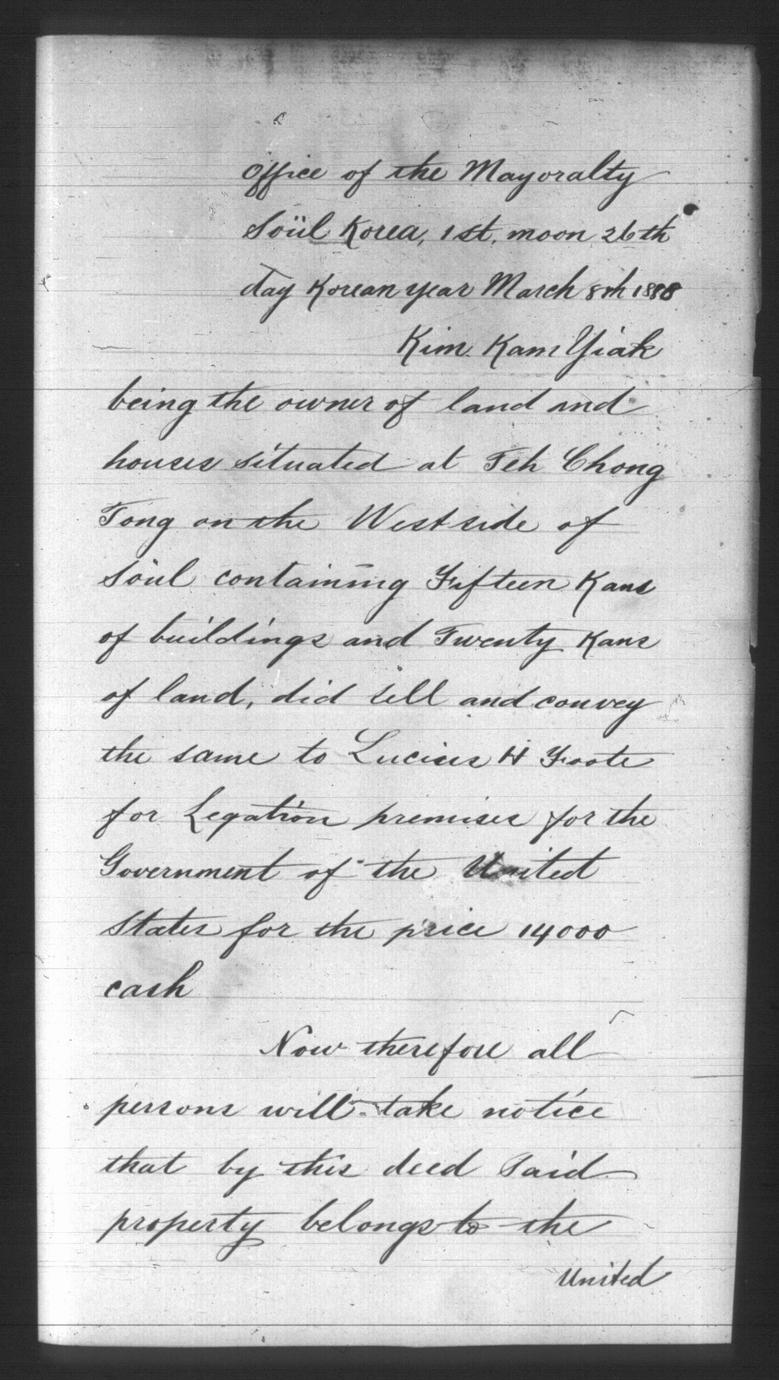 Office of the Mayoralty
Söül Korea, 1st, moon 26th
day Korean year March 8th 1888
Kim Kam Yiak
being the owner of land and
houses situated at Teh Chong
Tong on the West side of
Söul containing Fifteen Kans
of buildings and Twenty Kans
of land, did sell and convey
the same to Lucius H Foote
for Legation premises for the
Government of the United
States for the price 14000
cash
Now therefore all
persons will take notice
that by this deed said
property belongs to the
United